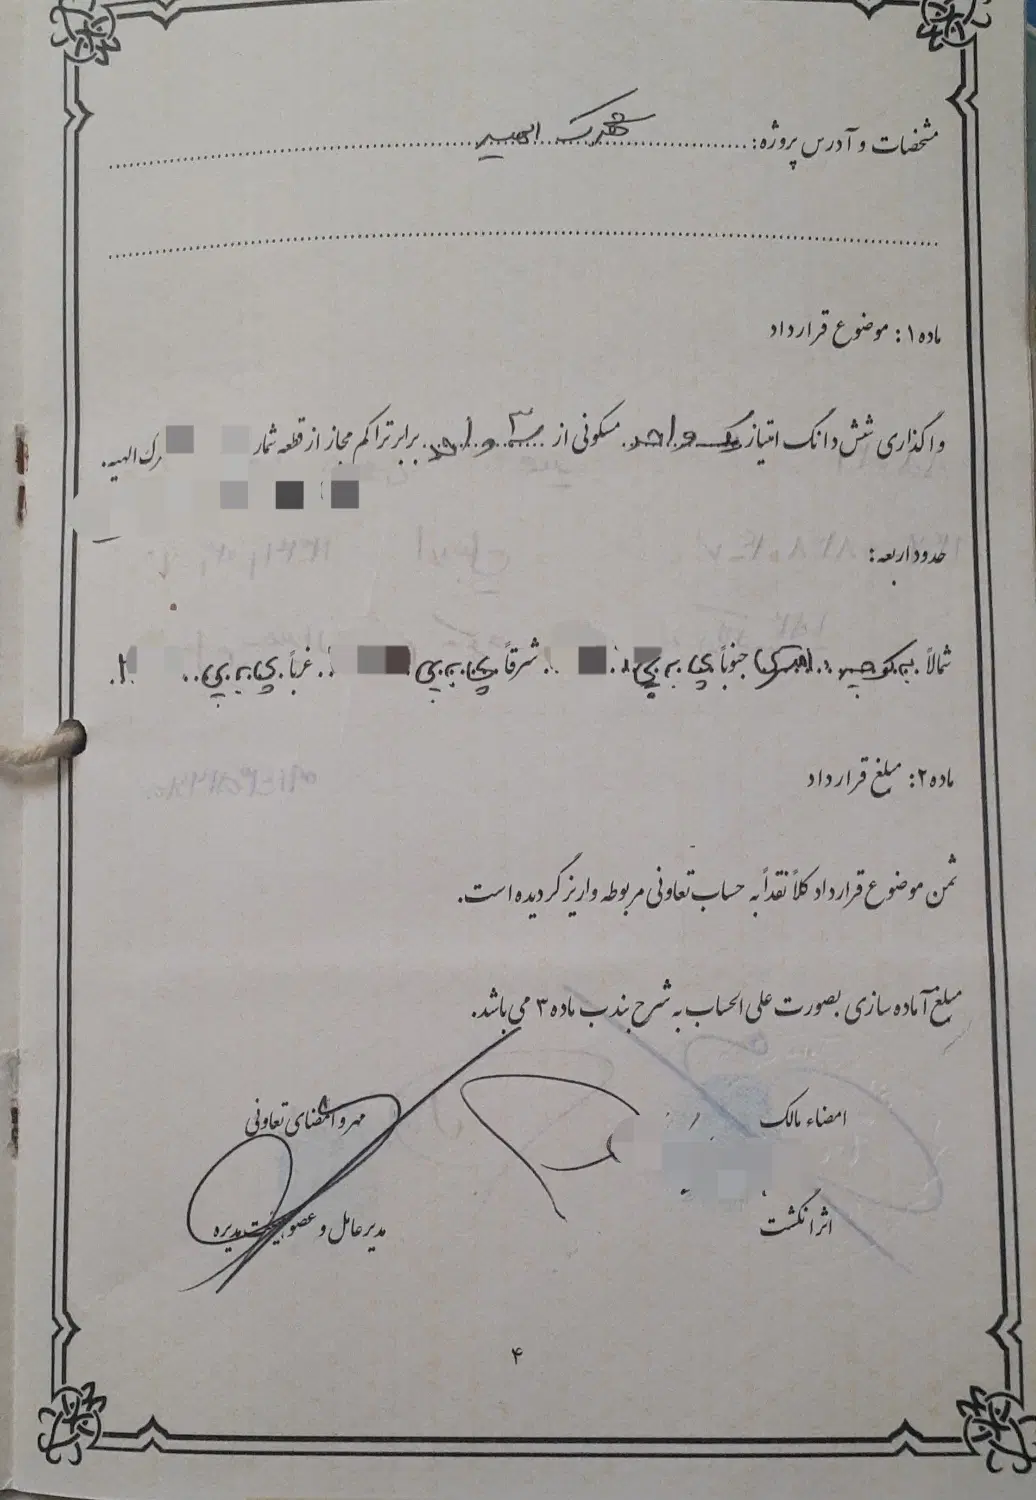 مشخصات و آدرس پروژه: شهرک الهیه
ماده ۱: موضوع قرارداد
واگذاری شش دانگ امتیاز یک واحد مسکونی از ۳ واحد برابر تراکم مجاز از قطعه شمار رک الهیه.
حدود اربعه:
شمالاً به کوچه جنوباً پی به پی شرقاً پی به پی غرباً پی به پی
ماده ۲: مبلغ قرارداد
ثمن موضوع قرارداد کلاً نقداً به حساب تعاونی مربوطه واریز گردیده است.
مبلغ آماده سازی بصورت علی الحساب به شرح بند ب ماده ۳ می باشد.
امضاء مالک
مهر و امضای تعاونی
اثر انگشت
مدیر عامل و عضو هیئت مدیره
۴